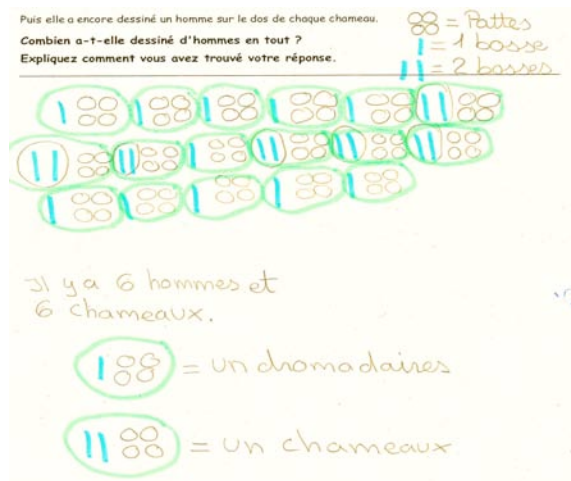 Puis elle a encore dessiné un homme sur le dos de chaque chameau.
Combien a-t-elle dessiné d'hommes en tout ?
Expliquez comment vous avez trouvé votre réponse.
= Pattes
= 1 bosse
= 2 bosses
Il y a 6 hommes et
6 chameaux.
= un dromadaires
= un chameaux